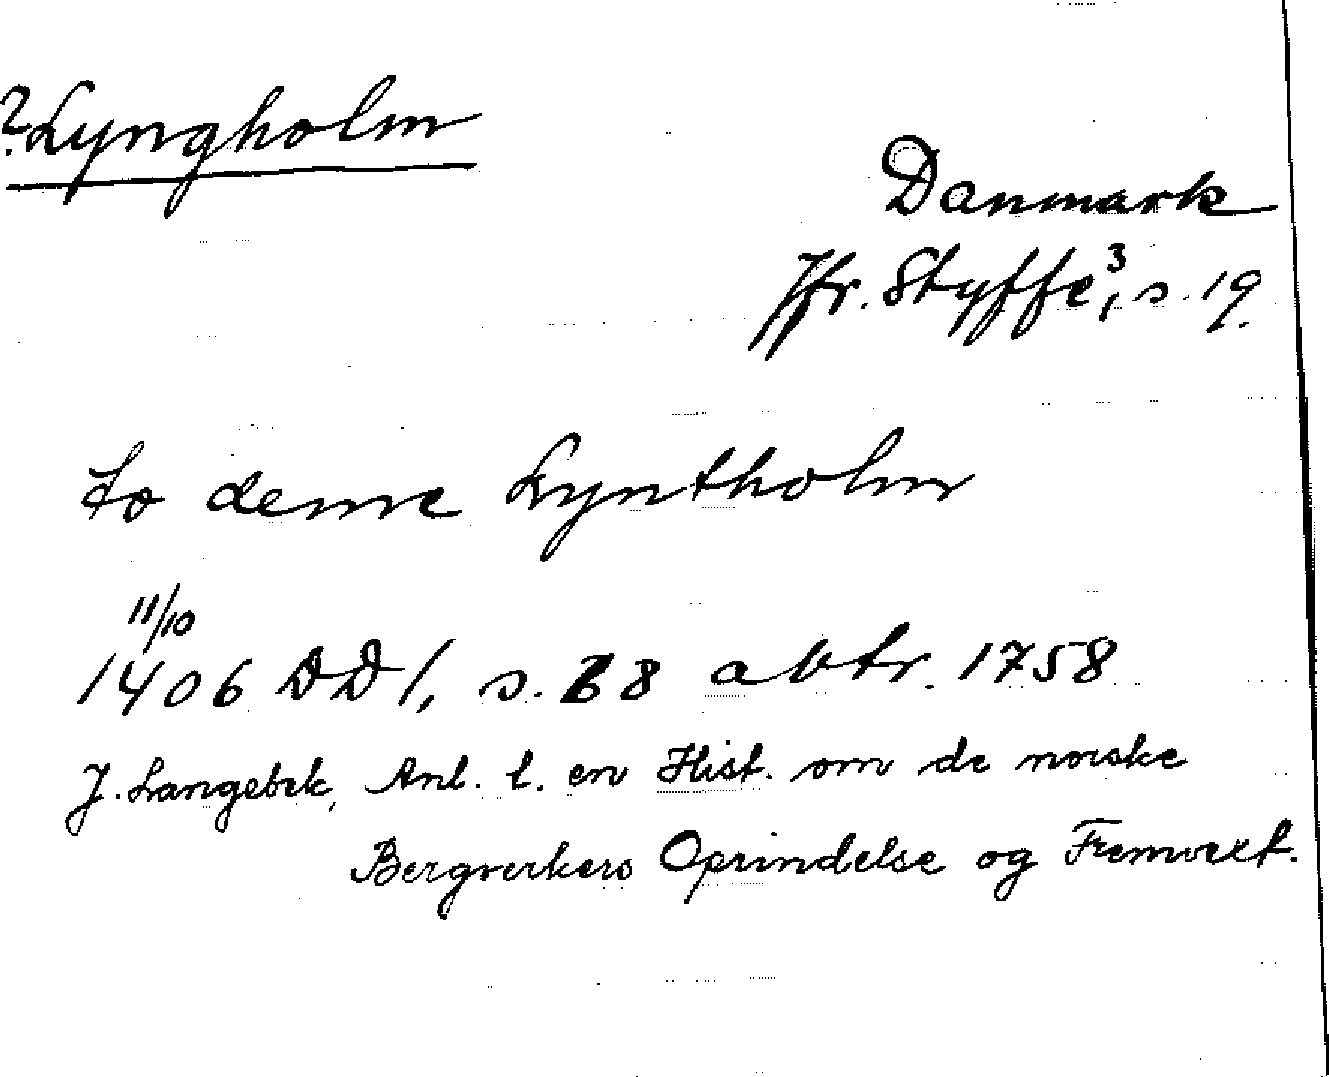 ? Lyngholm
Danmark
Jfr. Styffe³, s. 19.
to denne Lyntholm
11/10
1406 DD 1, s. 88 avtr. 1758
J. Langebek, Anl. t. en Hist. om de norske
Bergverkers Oprindelse og Fremvext.